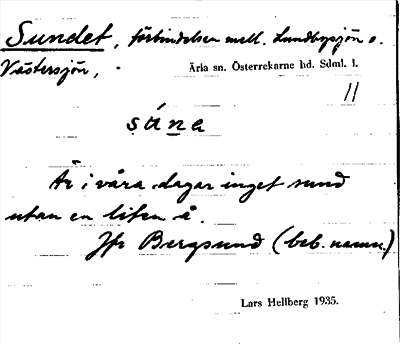 Sundet, förbindelsen mell. Lundbysjön o.
Västersjön,
Ärla sn. Österrekarne hd. Sdml. l.
11
Är i våra dagar inget sund
utan en liten å.
Jfr Bergsund (beb. namn.)
Lars Hellberg 1935.